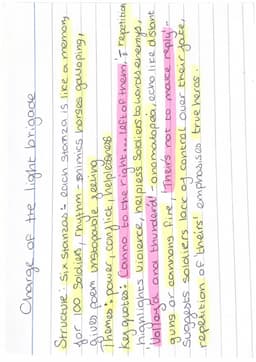 Charge of the light brigade
Structure: Six stanzas:- each stanza is like a memory
for 100 soldiers, rhythm - mimics horses galloping,
gives poem unstoppable feeling
Themes: power, conflict, helplessness
Key quotes: 'Canno to the right... left of them,' repetition
highlights violence, helpless soldiers towards enemys,
'Volleyed and thundered' - onomatopoeia, echo like distant
guns or cannons fire, 'Theirs not to make reply'-
suggests soldiers lack of control over their fate,
repetition of 'theirs' emphasises true heros.